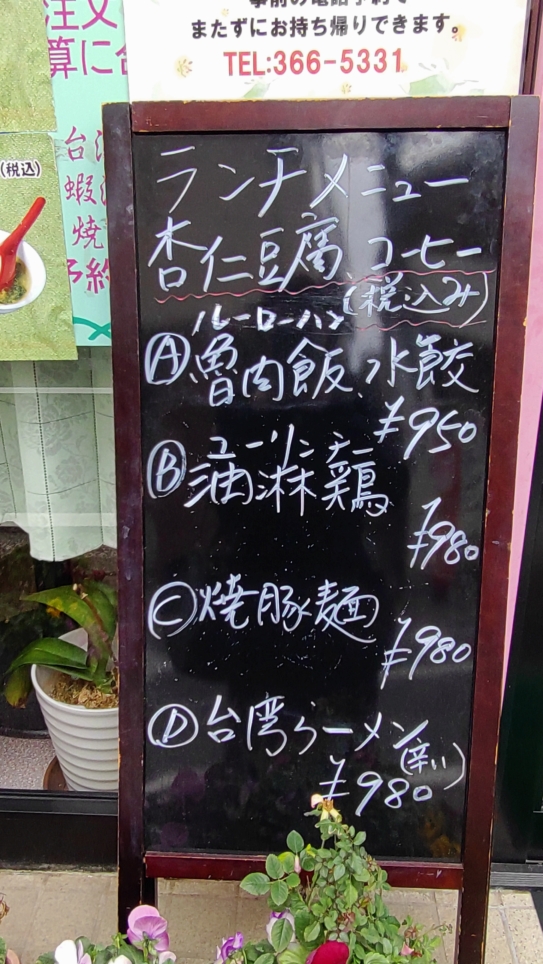 またずにお持ち帰りできます。
TEL:366-5331
注文
算に
(税込)
台
蝦
焼
予約
ランチメニュー
杏仁豆腐、コーヒー
(税込み)
ルーローハン
Ⓐ魯肉飯、水餃
¥950
ユーリンチー
Ⓑ油淋鶏
¥980
Ⓒ焼豚麺
¥980
Ⓓ台湾らーメン
(辛い)
¥980